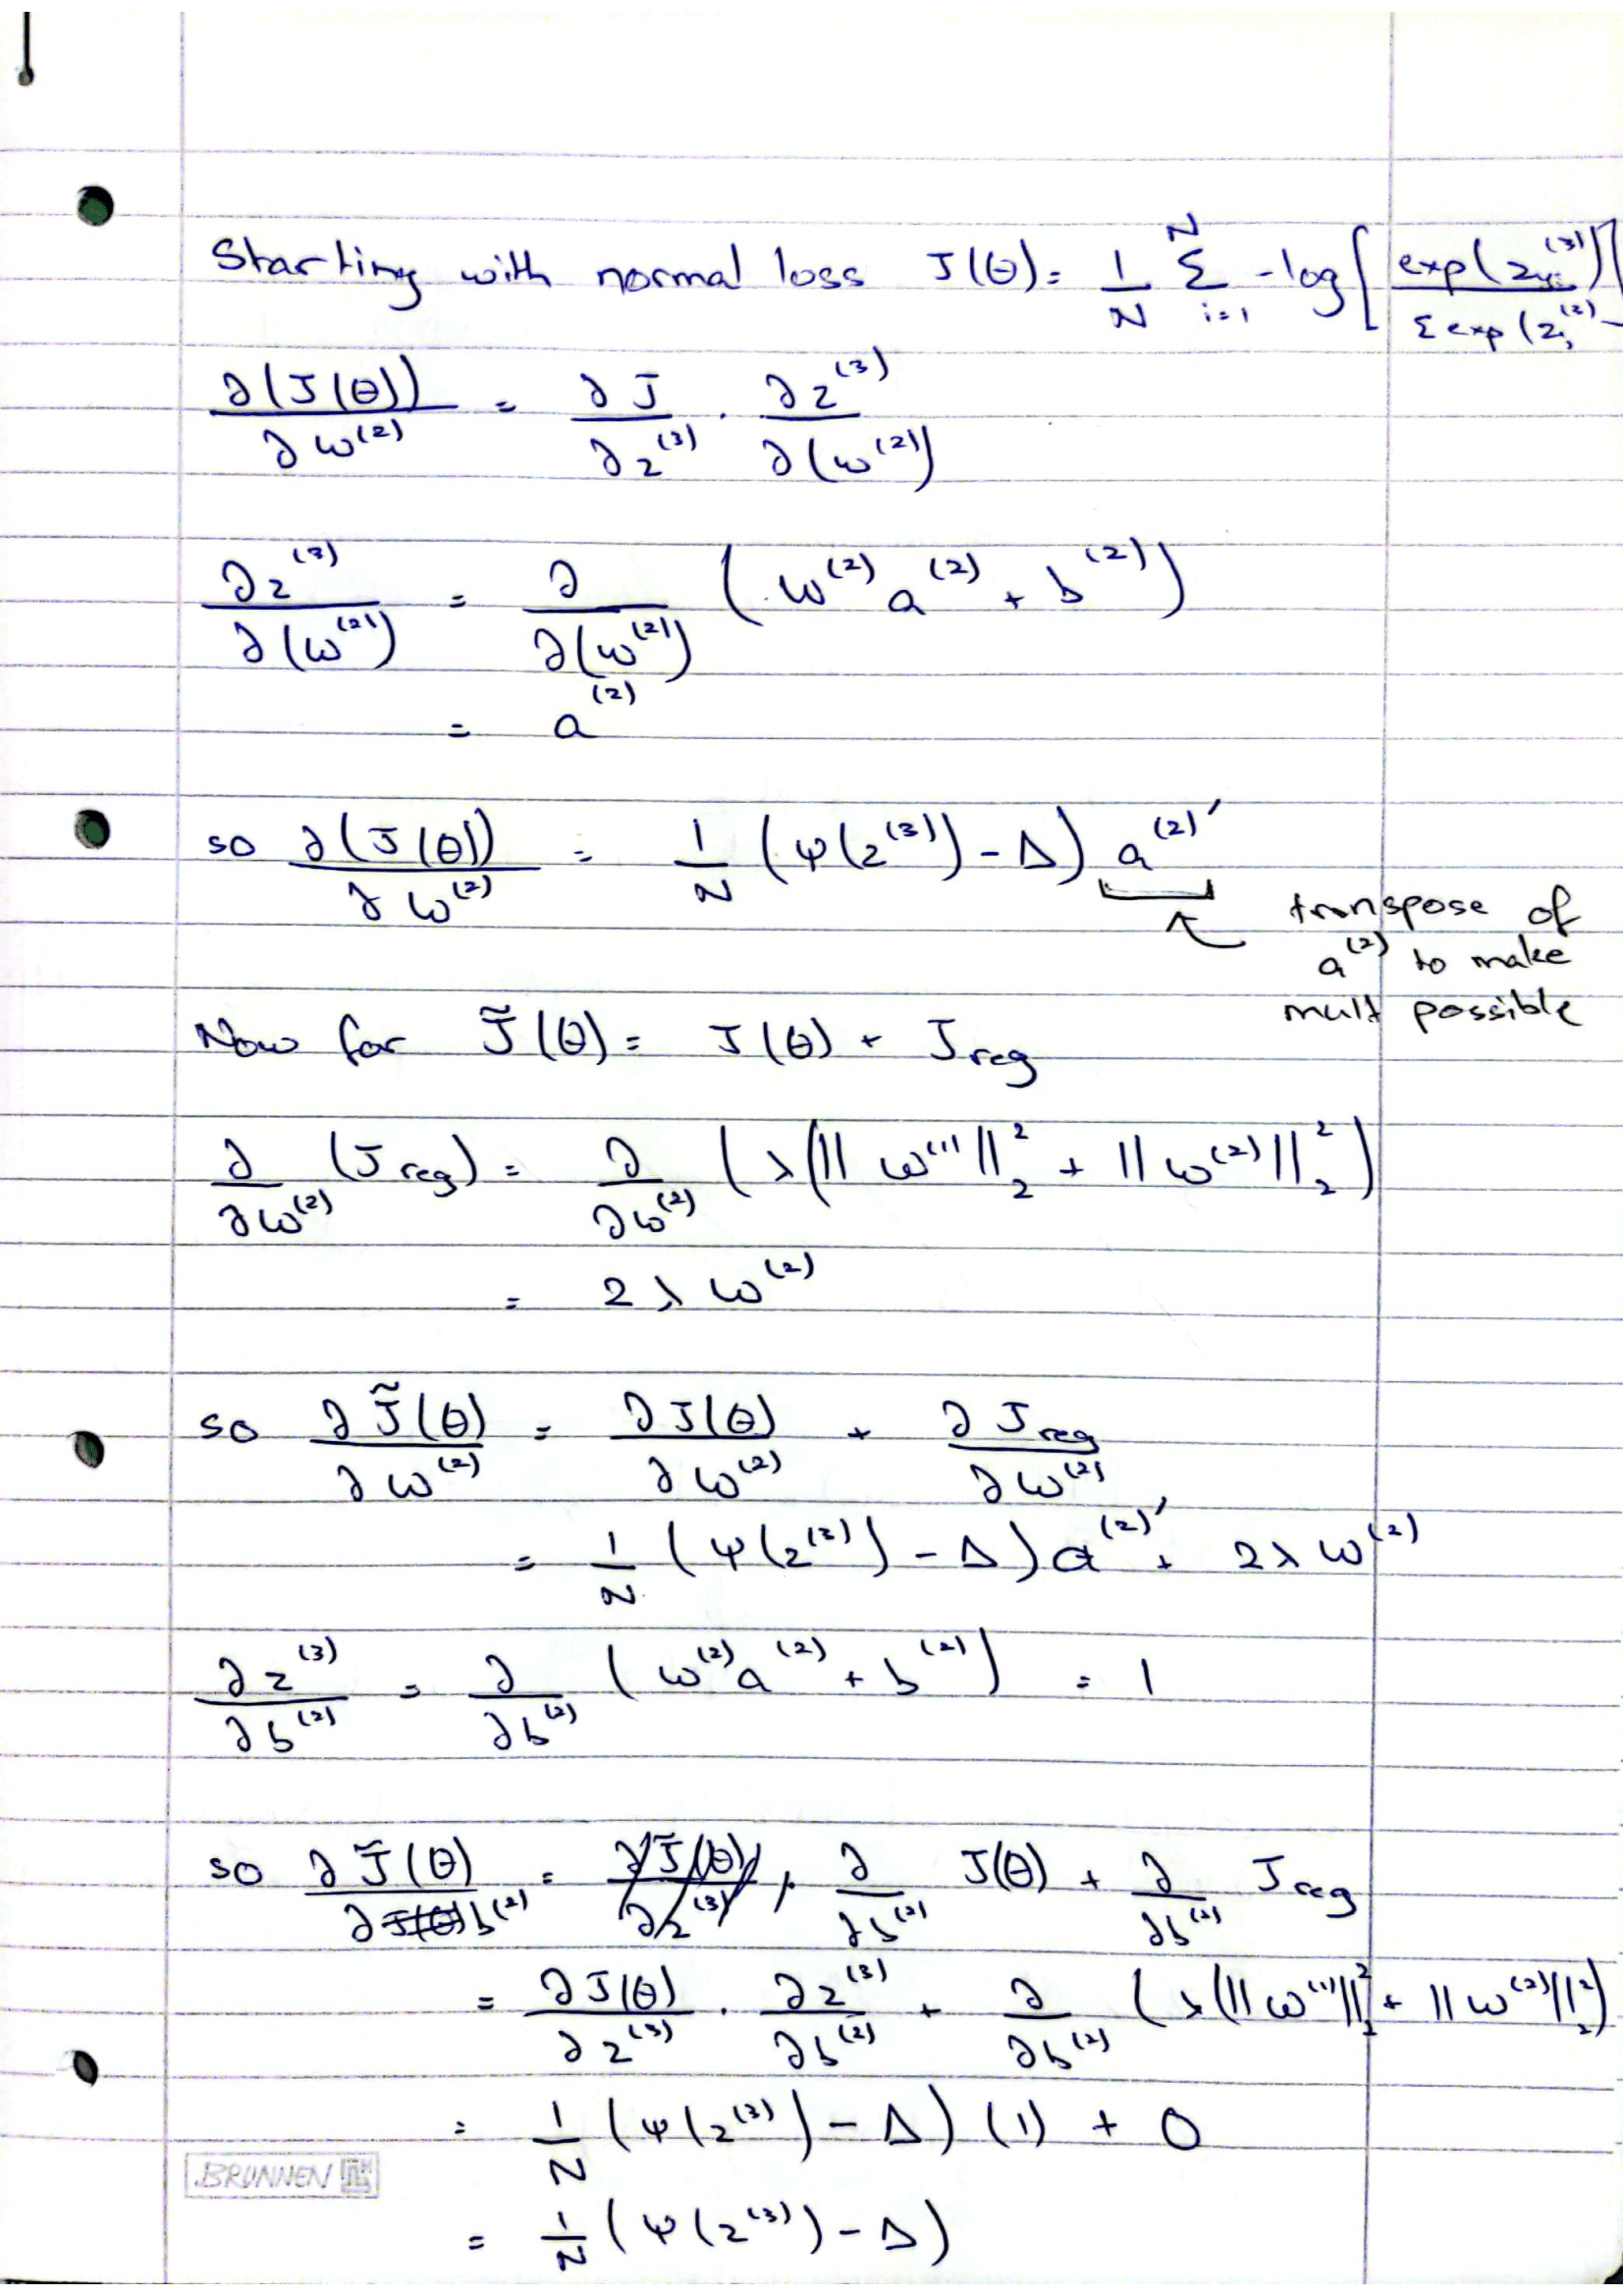 Starting with normal loss J(θ) = 1/N Σ_{i=1}^{N} -log [ exp(z_{yi}^{(3)}) / Σ exp(z_j^{(2)}
∂(J(θ))/∂w^{(2)} = ∂J/∂z^{(3)} . ∂z^{(3)}/∂(w^{(2)})
∂z^{(3)}/∂(w^{(2)}) = ∂/∂(w^{(2)}) (w^{(2)} a^{(2)} + b^{(2)})
= a^{(2)}
so ∂(J(θ))/∂w^{(2)} = 1/N (ψ(z^{(3)}) - Δ) a^{(2)}'
transpose of
a^{(2)} to make
mult possible
Now for J̃(θ) = J(θ) + J_{reg}
∂/∂w^{(2)} (J_{reg}) = ∂/∂w^{(2)} (λ(||w^{(1)}||_2^2 + ||w^{(2)}||_2^2)
= 2λw^{(2)}
so ∂J̃(θ)/∂w^{(2)} = ∂J(θ)/∂w^{(2)} + ∂J_{reg}/∂w^{(2)}
= 1/N (ψ(z^{(3)}) - Δ) a^{(2)}' + 2λw^{(2)}
∂z^{(3)}/∂b^{(2)} = ∂/∂b^{(2)} (w^{(2)} a^{(2)} + b^{(2)}) = 1
so ∂J̃(θ)/∂b^{(2)} = ∂/∂b^{(2)} J(θ) + ∂/∂b^{(2)} J_{reg}
= ∂J(θ)/∂z^{(3)} . ∂z^{(3)}/∂b^{(2)} + ∂/∂b^{(2)} (λ(||w^{(1)}||_2^2 + ||w^{(2)}||_2^2)
= 1/N (ψ(z^{(3)}) - Δ) (1) + 0
BRUNNEN
= 1/N (ψ(z^{(3)}) - Δ)